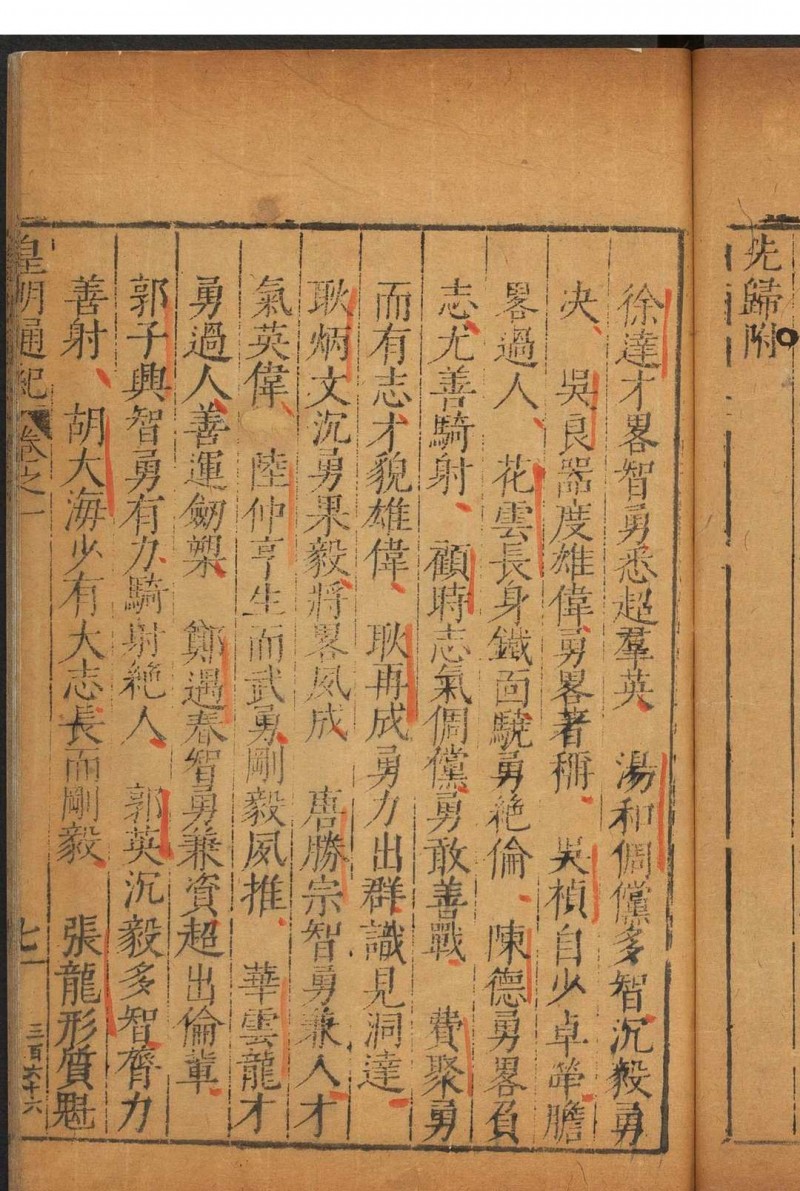 先歸附
徐達才畧智勇悉超羣英 湯和倜儻多智沉毅勇
决 吳良器度雄偉勇畧著稱 吳禎自少卓犖膽
畧過人 花雲長身鐵面驍勇絶倫 陳德勇畧負
志尤善騎射 顧時志氣倜儻勇敢善戰 費聚勇
而有志才貌雄偉 耿再成勇力出群識見洞達
耿炳文沉勇果毅將畧夙成 唐勝宗智勇兼人才
氣英偉 陸仲亨生而武勇剛毅夙推 華雲龍才
勇過人善運劒槊 鄭遇春智勇兼資超出倫輩
郭子興智勇有力騎射絶人 郭英沉毅多智膂力
善射 胡大海少有大志長而剛毅 張龍形質魁
皇明通紀 卷之一 七一 三百六十六